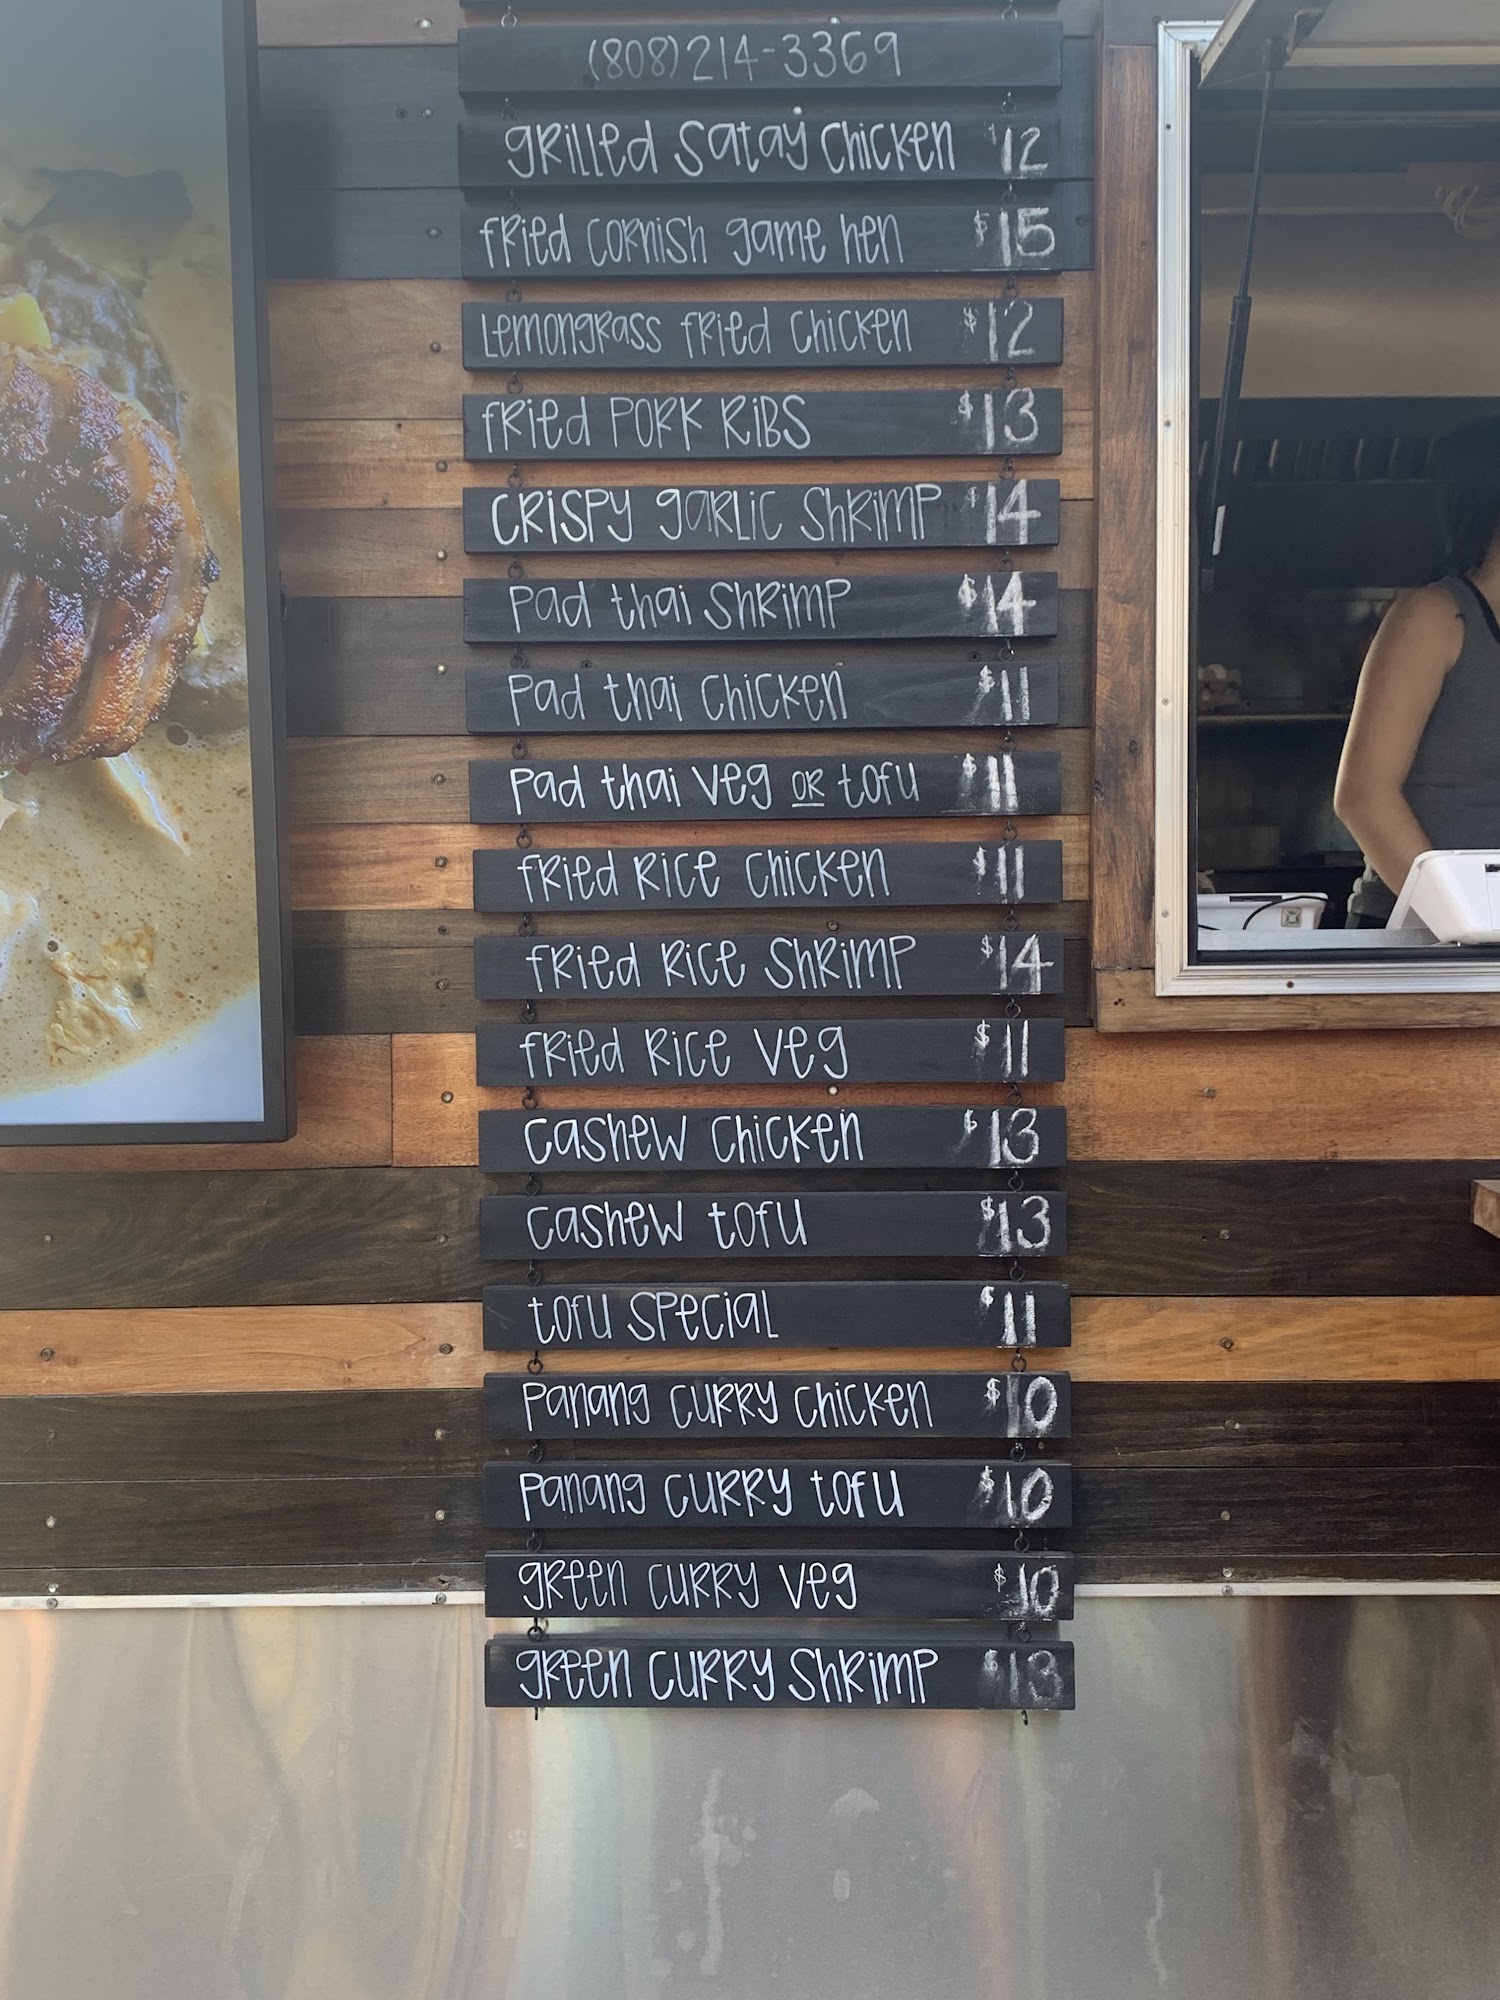 (808)214-3369
GRilled Satay Chicken $12
fRied CORNiSH game hen $15
LemongRass fRied Chicken $12
fRied PORK RiBS $13
CRiSPY gaRLiC ShRimP $14
Pad thai ShRimP $14
Pad thai Chicken $11
Pad thai Veg OR tofu $11
fRied Rice Chicken $11
fRied Rice ShRimP $14
fRied Rice Veg $11
Cashew Chicken $13
Cashew tofu $13
tofu SPecial $11
Panang CuRRy Chicken $10
Panang CuRRy tofu $10
gReen CuRRy Veg $10
gReen CuRRy ShRimP $13